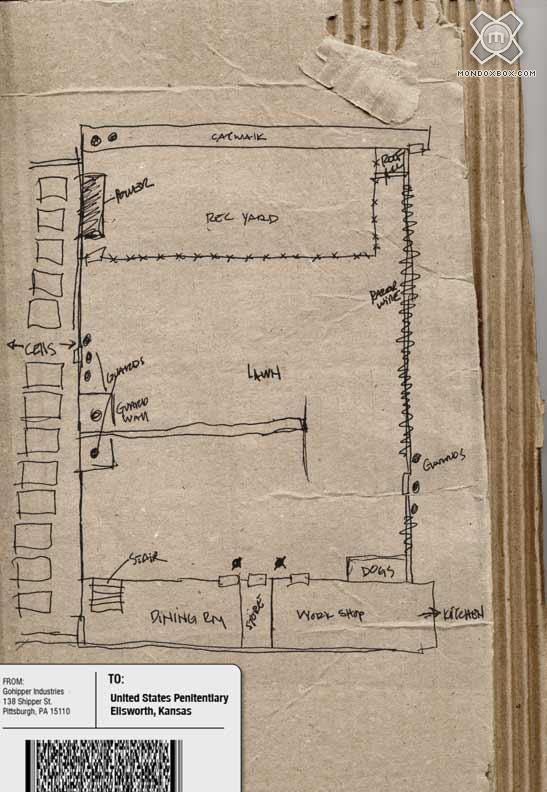 m
MONDOXBOX.COM
CATWALK
POWER
REC YARD
RAZOR
WIRE
CELLS
GUARDS
LAWN
GUARD
WALL
GUARDS
STAIR
DOGS
DINING RM
STORE
WORK SHOP
KITCHEN
FROM:
Gohipper Industries
138 Shipper St.
Pittsburgh, PA 15110
TO:
United States Penitentiary
Ellsworth, Kansas